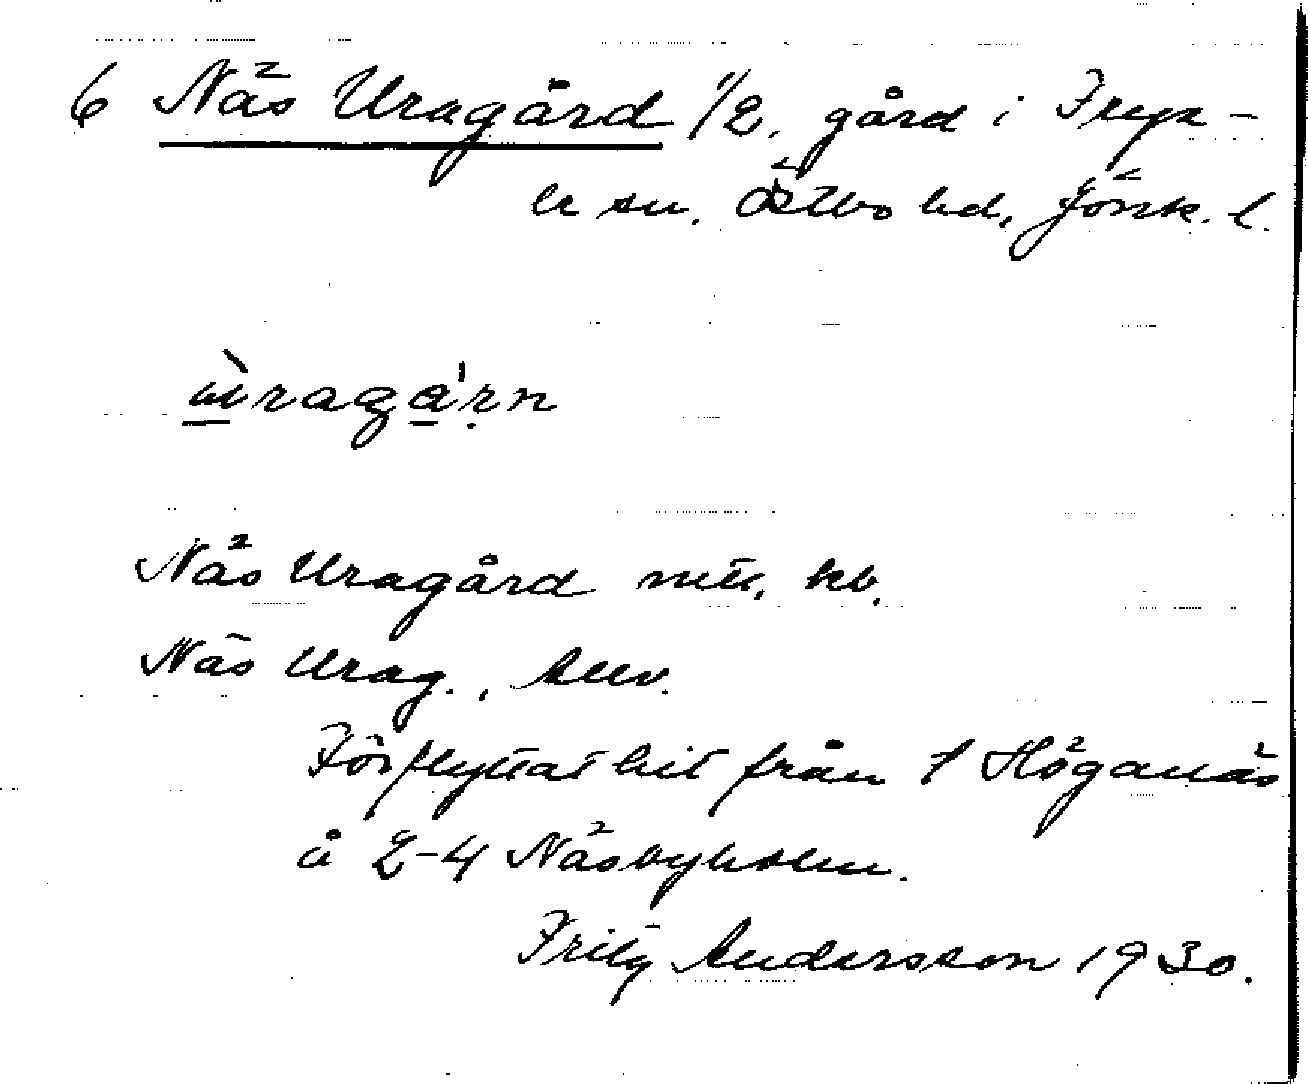 6 Näs Uragård 1/2, gård i Frye-
le sn. Östbo hd, Jönk. l.
ùragárn
Näs Uragård mtl, kb.
Näs Urag., Allv.
Förflyttat hit från 1 Höganäs
å 2-4 Näsbyholm.
Fritz Andersson 1930.